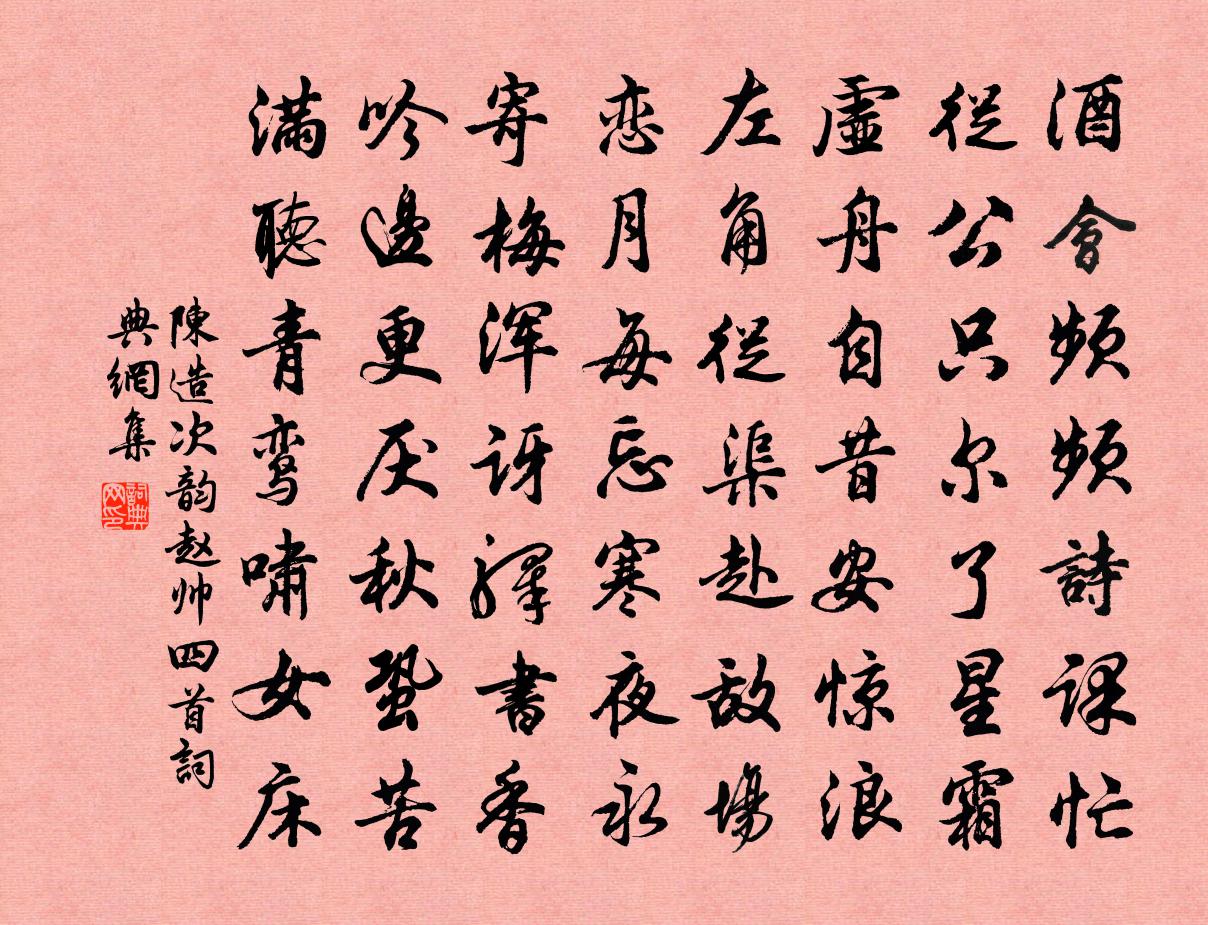 酒會頻頻詩課忙
從公只尔了星霜
虛舟自昔安惊浪
左角從渠赴敌場
恋月每忘寒夜永
寄梅浑讶驛書香
吟邊更厌秋蛩苦
满聽青鸾嘯女床
陳造次韵赵帅四首詞
典網集
詞典网印